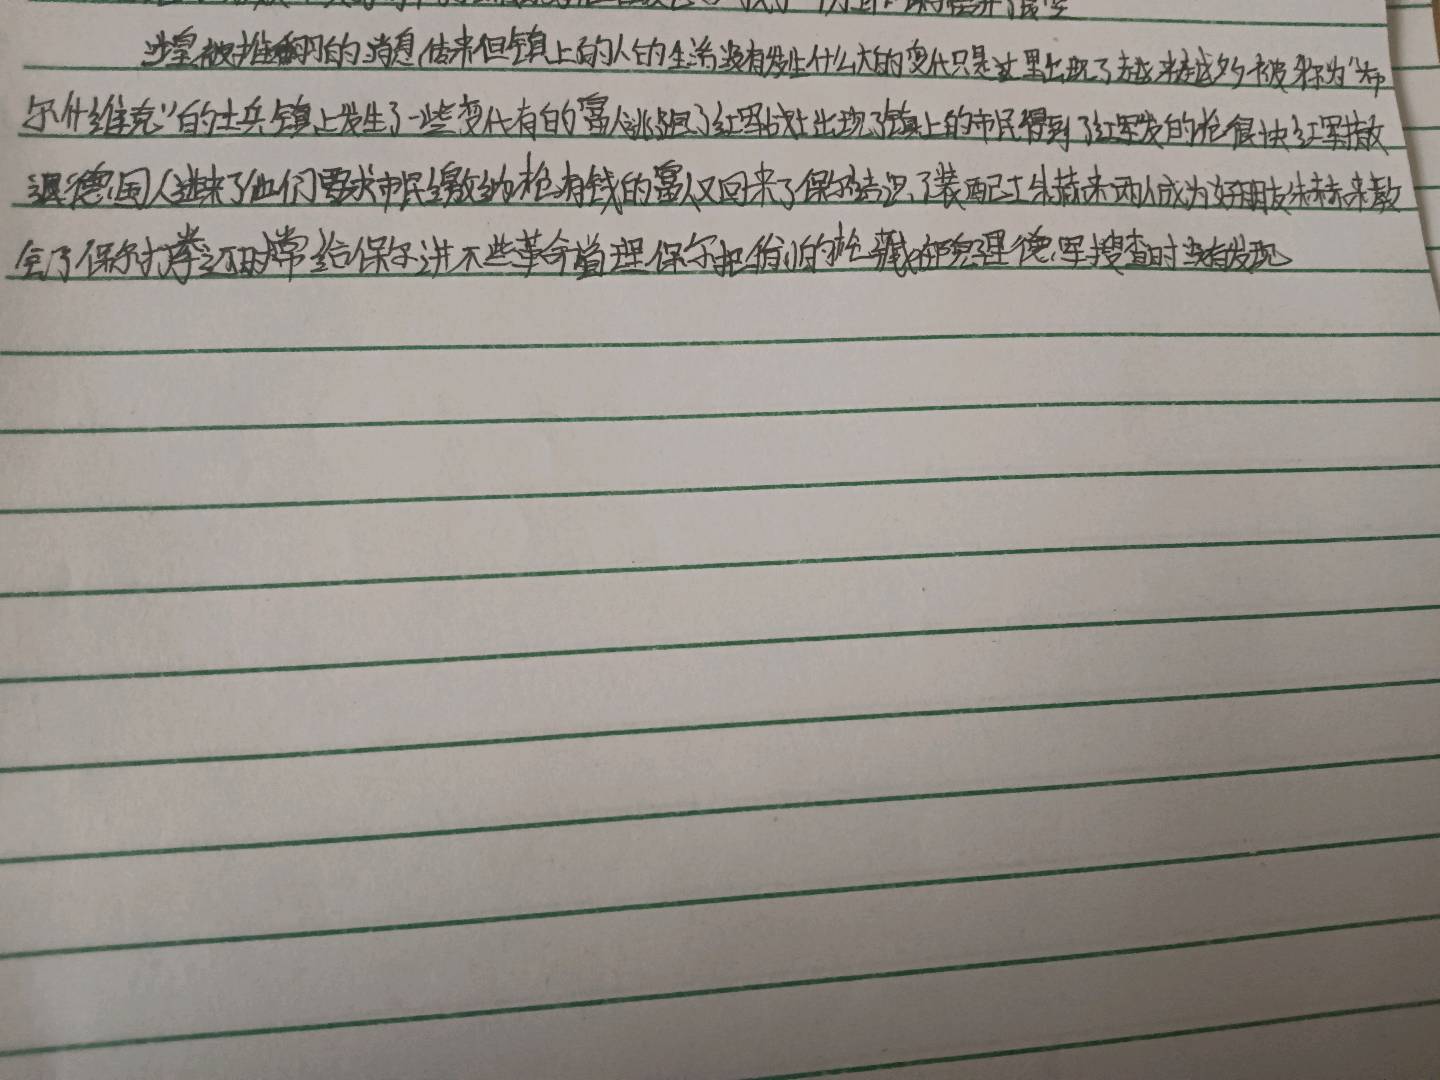 沙皇被推翻的消息传来但镇上的人的生活没有发生什么大的变化只是这里出现了越来越多被称为“布
尔什维克”的士兵镇上发生了一些变化有的富人逃跑了红军战士出现了镇上的市民得到了红军发的枪很快红军撤
退德国人进来了他们要求市民缴纳枪有钱的富人又回来了保尔结识了装配工朱赫来两人成为好朋友朱赫来教
会了保尔打拳还时常给保尔讲一些革命道理保尔把偷的枪藏在里德军搜查时没有发现